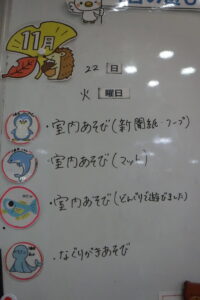 11月
22 日
火 曜日
・室内あそび(新聞紙・フープ)
・室内あそび(マット)
・室内あそび(どんぐりで遊びました)
・なぐりがきあそび